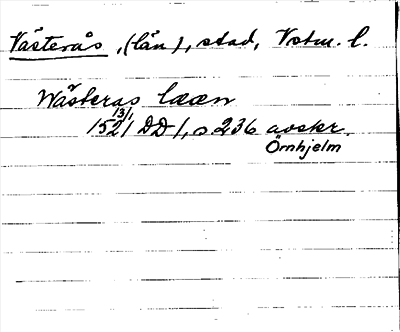 Västerås, (län), stad, Vstm. l.
Wästeras læen
13/1
1521 DD 1, s 236 avskr.
Örnhjelm